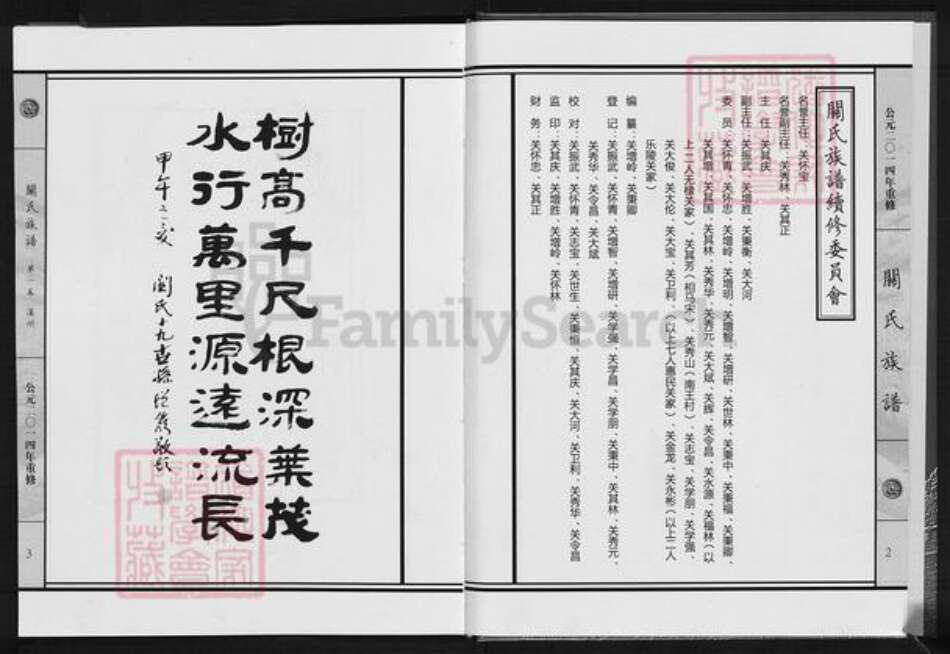 公元二〇一四年重修
關氏族譜
2
關氏族譜續修委員會
名誉主任：关怀宝
名誉副主任：关秀林、关其正
主任：关其庆
副主任：关振武、关增胜、关秉衡、关大河
委员：关怀青、关怀忠、关增岭、关增明、关增智、关增研、关世林、关秉中、关秉福、关秉卿、
关其增、关其国、关其林、关秀华、关秀元、关大斌、关辉、关令昌、关水源、关福林（以
上二人无棣关家）、关其芳（相马宋）、关秀山（南王村）、关志宝、关学朋、关学强、
关大俊、关大伦、关大宝、关卫利、（以上七人惠民关家）、关金龙、关永彬（以上二人
乐陵关家）
编纂：关增岭、关秉卿
登记：关振武、关怀青、关增智、关增研、关学强、关学昌、关学朋、关秉中、关其林、关秀元、
关秀华、关令昌、关大斌
校对：关振武、关怀青、关志宝、关世生、关秉恒、关其庆、关大河、关卫利、关秀华、关令昌
监印：关其庆、关增胜、关增岭、关怀林
财务：关怀忠、关其正
樹高千尺根深葉茂
水行萬里源遠流長
甲午之
關氏十九世孫
敬題
關氏族譜
公元二〇一四年重修
3
FamilySearch